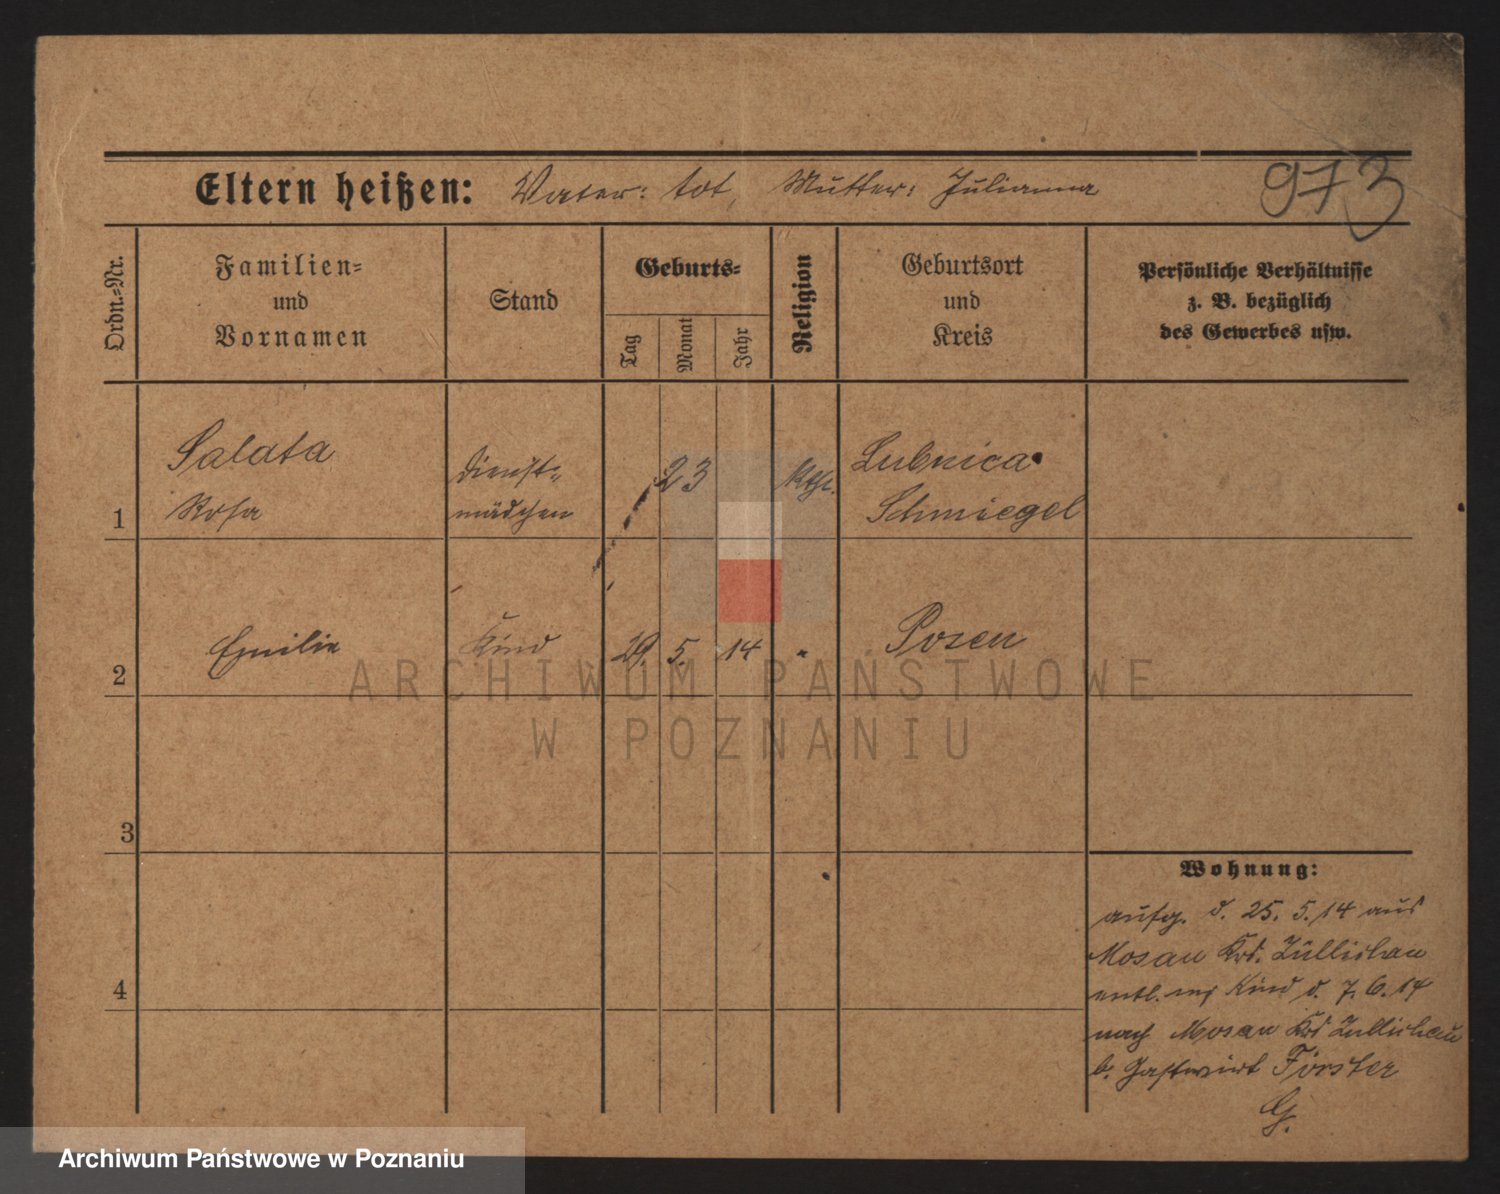 Eltern heißen: Vater: tot, Mutter: Julianna
973
Ordn.-Nr.
Familien-
und
Vornamen
Stand
Geburts-
Tag
Monat
Jahr
Religion
Geburtsort
und
Kreis
Persönliche Verhältnisse
z. B. bezüglich
des Gewerbes usw.
1
Salata
Rosa
Dienst-
mädchen
23
kath.
Lubnica
Schmiegel
2
Emilie
Kind
29. 5. 14
"
Posen
3
4
Wohnung:
aufg. d. 25. 5. 14 aus
Mosau Krs. Züllichau
entl. mit Kind d. 7. 6. 14
nach Mosau Krs Züllichau
b. Gastwirt Förster
G.
ARCHIWUM PAŃSTWOWE
W POZNANIU
Archiwum Państwowe w Poznaniu